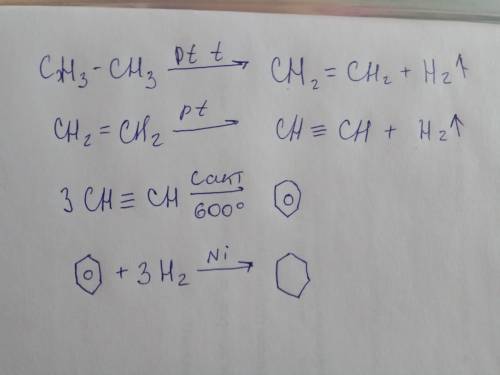 CH₃-CH₃ pt t → CH₂ = CH₂ + H₂↑
CH₂ = CH₂ pt → CH ≡ CH + H₂↑
3 CH ≡ CH Cакт 600° →
+ 3 H₂ Ni →